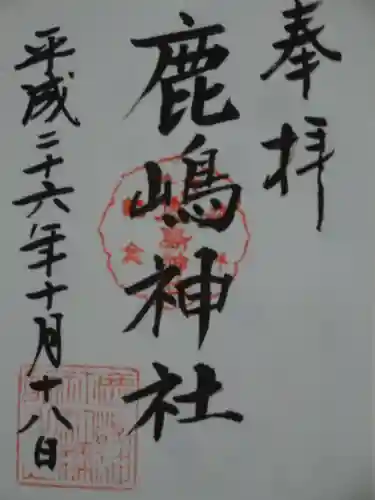 奉拝
鹿嶋神社
平成二十六年十月十八日